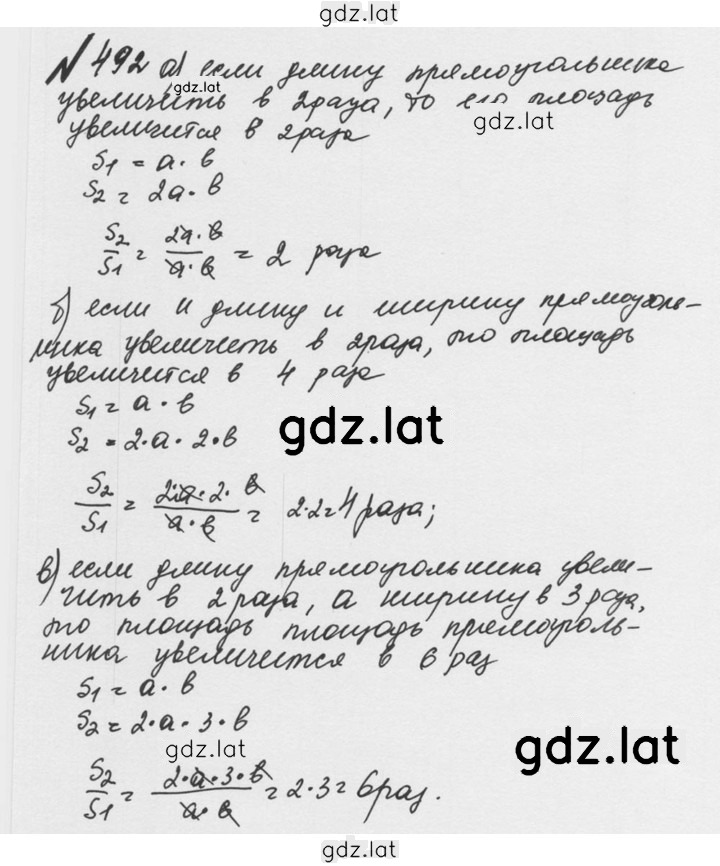 gdz.lat
№ 492 а) если длину прямоугольника
gdz.lat
увеличить в 2 раза, то его площадь
gdz.lat
увеличится в 2 раза
S1 = a · b
S2 = 2a · b
S2/S1 = 2a · b / a · b = 2 раза
б) если и длину и ширину прямоуголь-
ника увеличить в 2 раза, то площадь
увеличится в 4 раза
S1 = a · b
S2 = 2 · a · 2 · b
gdz.lat
S2/S1 = 2 · a · 2 · b / a · b = 2 · 2 = 4 раза;
в) если длину прямоугольника увели-
чить в 2 раза, а ширину в 3 раза,
то площадь площадь прямоуголь-
ника увеличится в 6 раз
S1 = a · b
S2 = 2 · a · 3 · b
gdz.lat
gdz.lat
S2/S1 = 2 · a · 3 · b / a · b = 2 · 3 = 6 раз.
gdz.lat